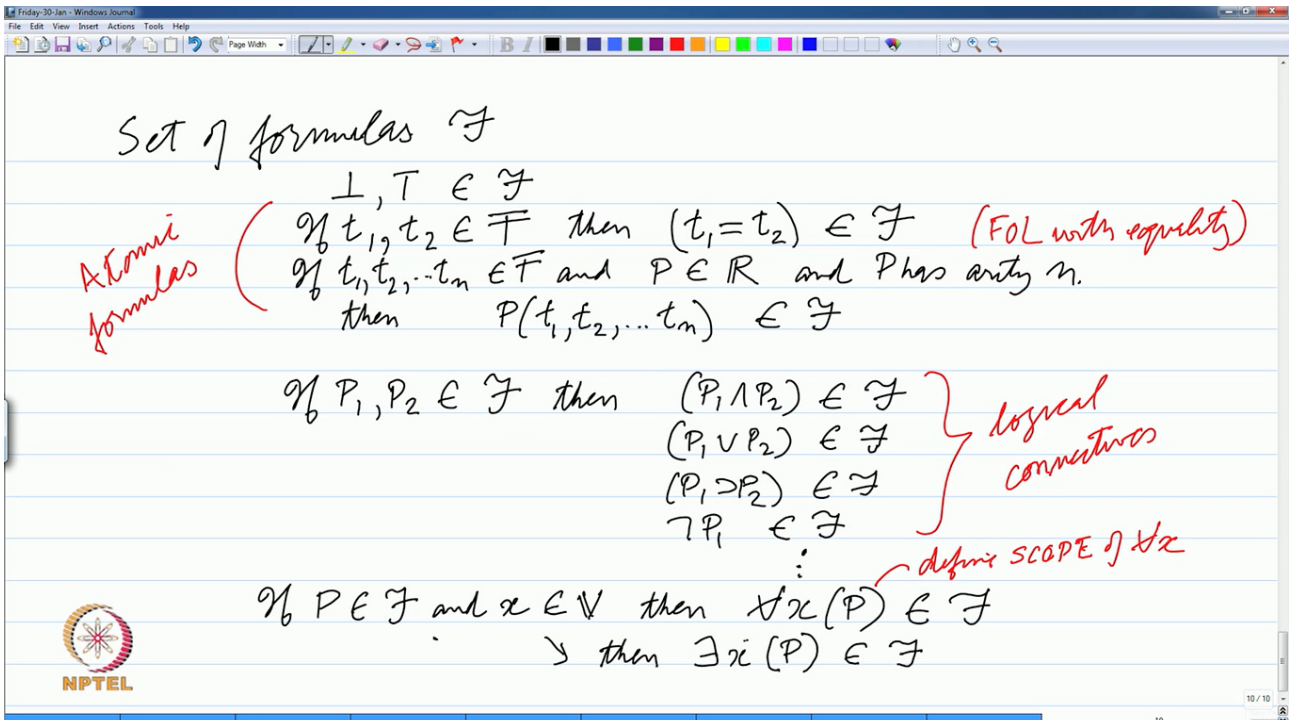 Friday-30-Jan - Windows Journal
File Edit View Insert Actions Tools Help
Page Width
B I
Set of formulas ℱ
⊥, ⊤ ∈ ℱ
If t₁, t₂ ∈ 𝕋 then (t₁ = t₂) ∈ ℱ (FOL with equality)
If t₁, t₂, ... tₙ ∈ 𝕋 and P ∈ ℝ and P has arity n.
then P(t₁, t₂, ... tₙ) ∈ ℱ
Atomic
formulas
If P₁, P₂ ∈ ℱ then (P₁ ∧ P₂) ∈ ℱ
(P₁ ∨ P₂) ∈ ℱ
(P₁ ⊃ P₂) ∈ ℱ
¬P₁ ∈ ℱ
⋮
logical
connectives
define SCOPE of ∀x
If P ∈ ℱ and x ∈ 𝕍 then ∀x(P) ∈ ℱ
↘ then ∃x(P) ∈ ℱ
NPTEL
10 / 10
10